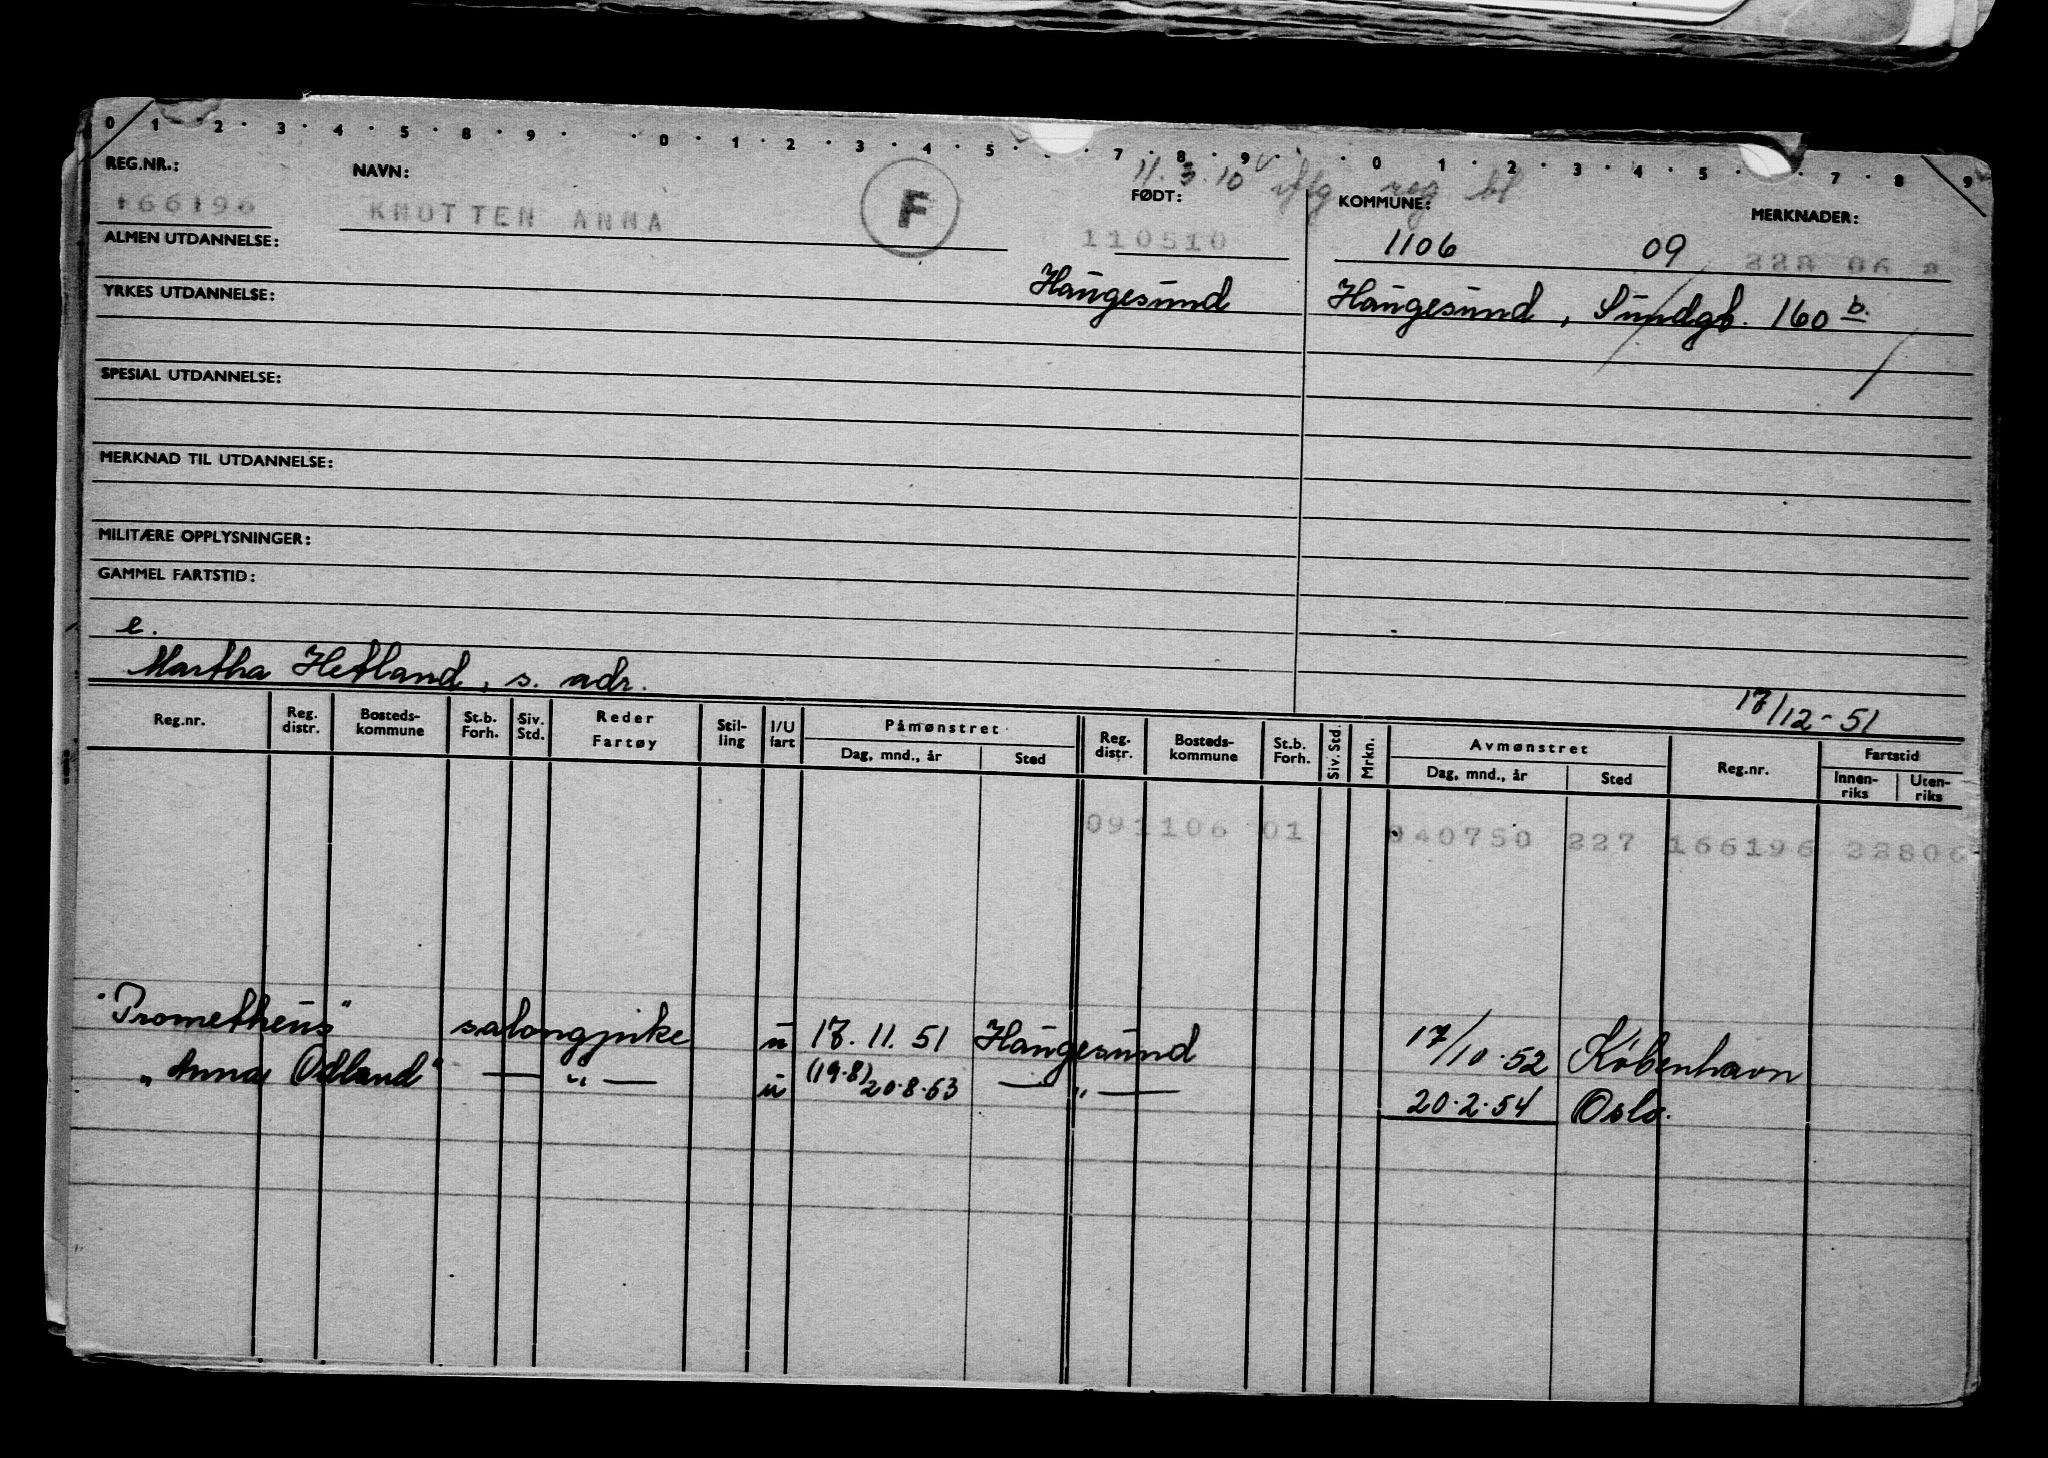 0 1 · 2 · 3 · 4 · 5 · 8 · 9 · · 0 · 1 · 2 · 3 · 4 · 5 · · 7 · 8 · 9 · · 0 · 1 · 2 · 3 · 4 · 5 · · 7 · 8 · 9
11.3.10
REG.NR.: NAVN: F FØDT: KOMMUNE: reg MERKNADER:
166196 KNOTTEN ANNA 110510 1106 09
ALMEN UTDANNELSE:
Haugesund Haugesund, Sundgt. 160 b.
YRKES UTDANNELSE:
SPESIAL UTDANNELSE:
MERKNAD TIL UTDANNELSE:
MILITÆRE OPPLYSNINGER:
GAMMEL FARTSTID:
e.
Martha Hetland, s. adr.
17/12-51
Reg.nr. Reg. distr. Bosteds-kommune St.b. Forh. Siv. Std. Reder Fartøy Stil-ling I/U fart Påmønstret Reg. distr. Bosteds-kommune St.b. Forh. Siv. Std. Mrkn. Avmønstret Reg.nr. Fartstid
Dag, mnd., år Sted Dag, mnd., år Sted Innen-riks Uten-riks
091106 01 040750 227 166196 22806
"Prometheus" salongpike u 17.11.51 Haugesund 17/10.52 København
"Anna Odland" — " — u (19.8) 20.8.53 — " — 20.2.54 Oslo.